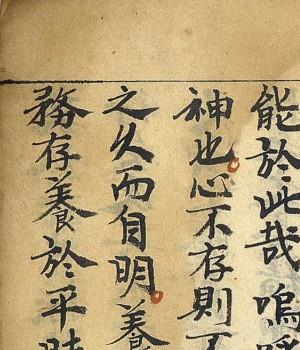 能於此哉嗚呼
神也心不存則不
之久而自明養
務存養於平時